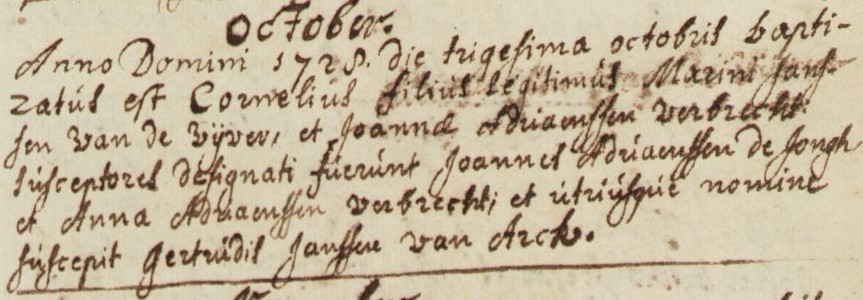 October.
Anno Domini 1728. die trigesima octobris bapti-
zatus est Cornelius filius legitimus Marini Jans-
sen van de vijver, et Joannæ Adriaenssen verbrecht:
susceptores designati fuerunt Joannes Adriaenssen de Jongh
et Anna Adriaenssen verbrecht; et utriusque nomine
suscepit Gertrudis Janssen van Arck.